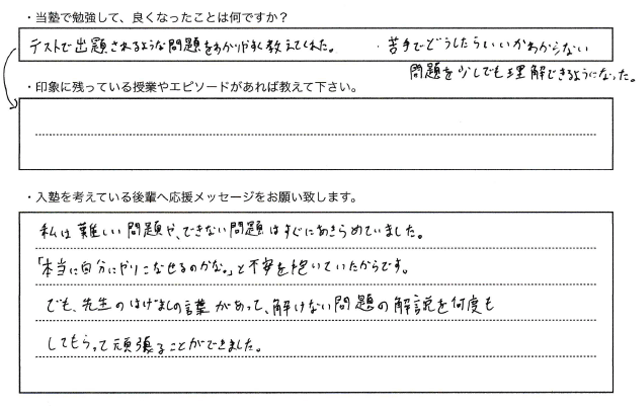 ・当塾で勉強して、良くなったことは何ですか？
テストで出題されるような問題をわかりやすく教えてくれた。 ・苦手でどうしたらいいかわからない
問題を少しでも理解できるようになった。
・印象に残っている授業やエピソードがあれば教えて下さい。
・入塾を考えている後輩へ応援メッセージをお願い致します。
私は難しい問題や、できない問題はすぐにあきらめていました。
「本当に自分にやりこなせるのかな。」と不安を抱いていたからです。
でも、先生のはげましの言葉があって、解けない問題の解説を何度も
してもらって頑張ることができました。